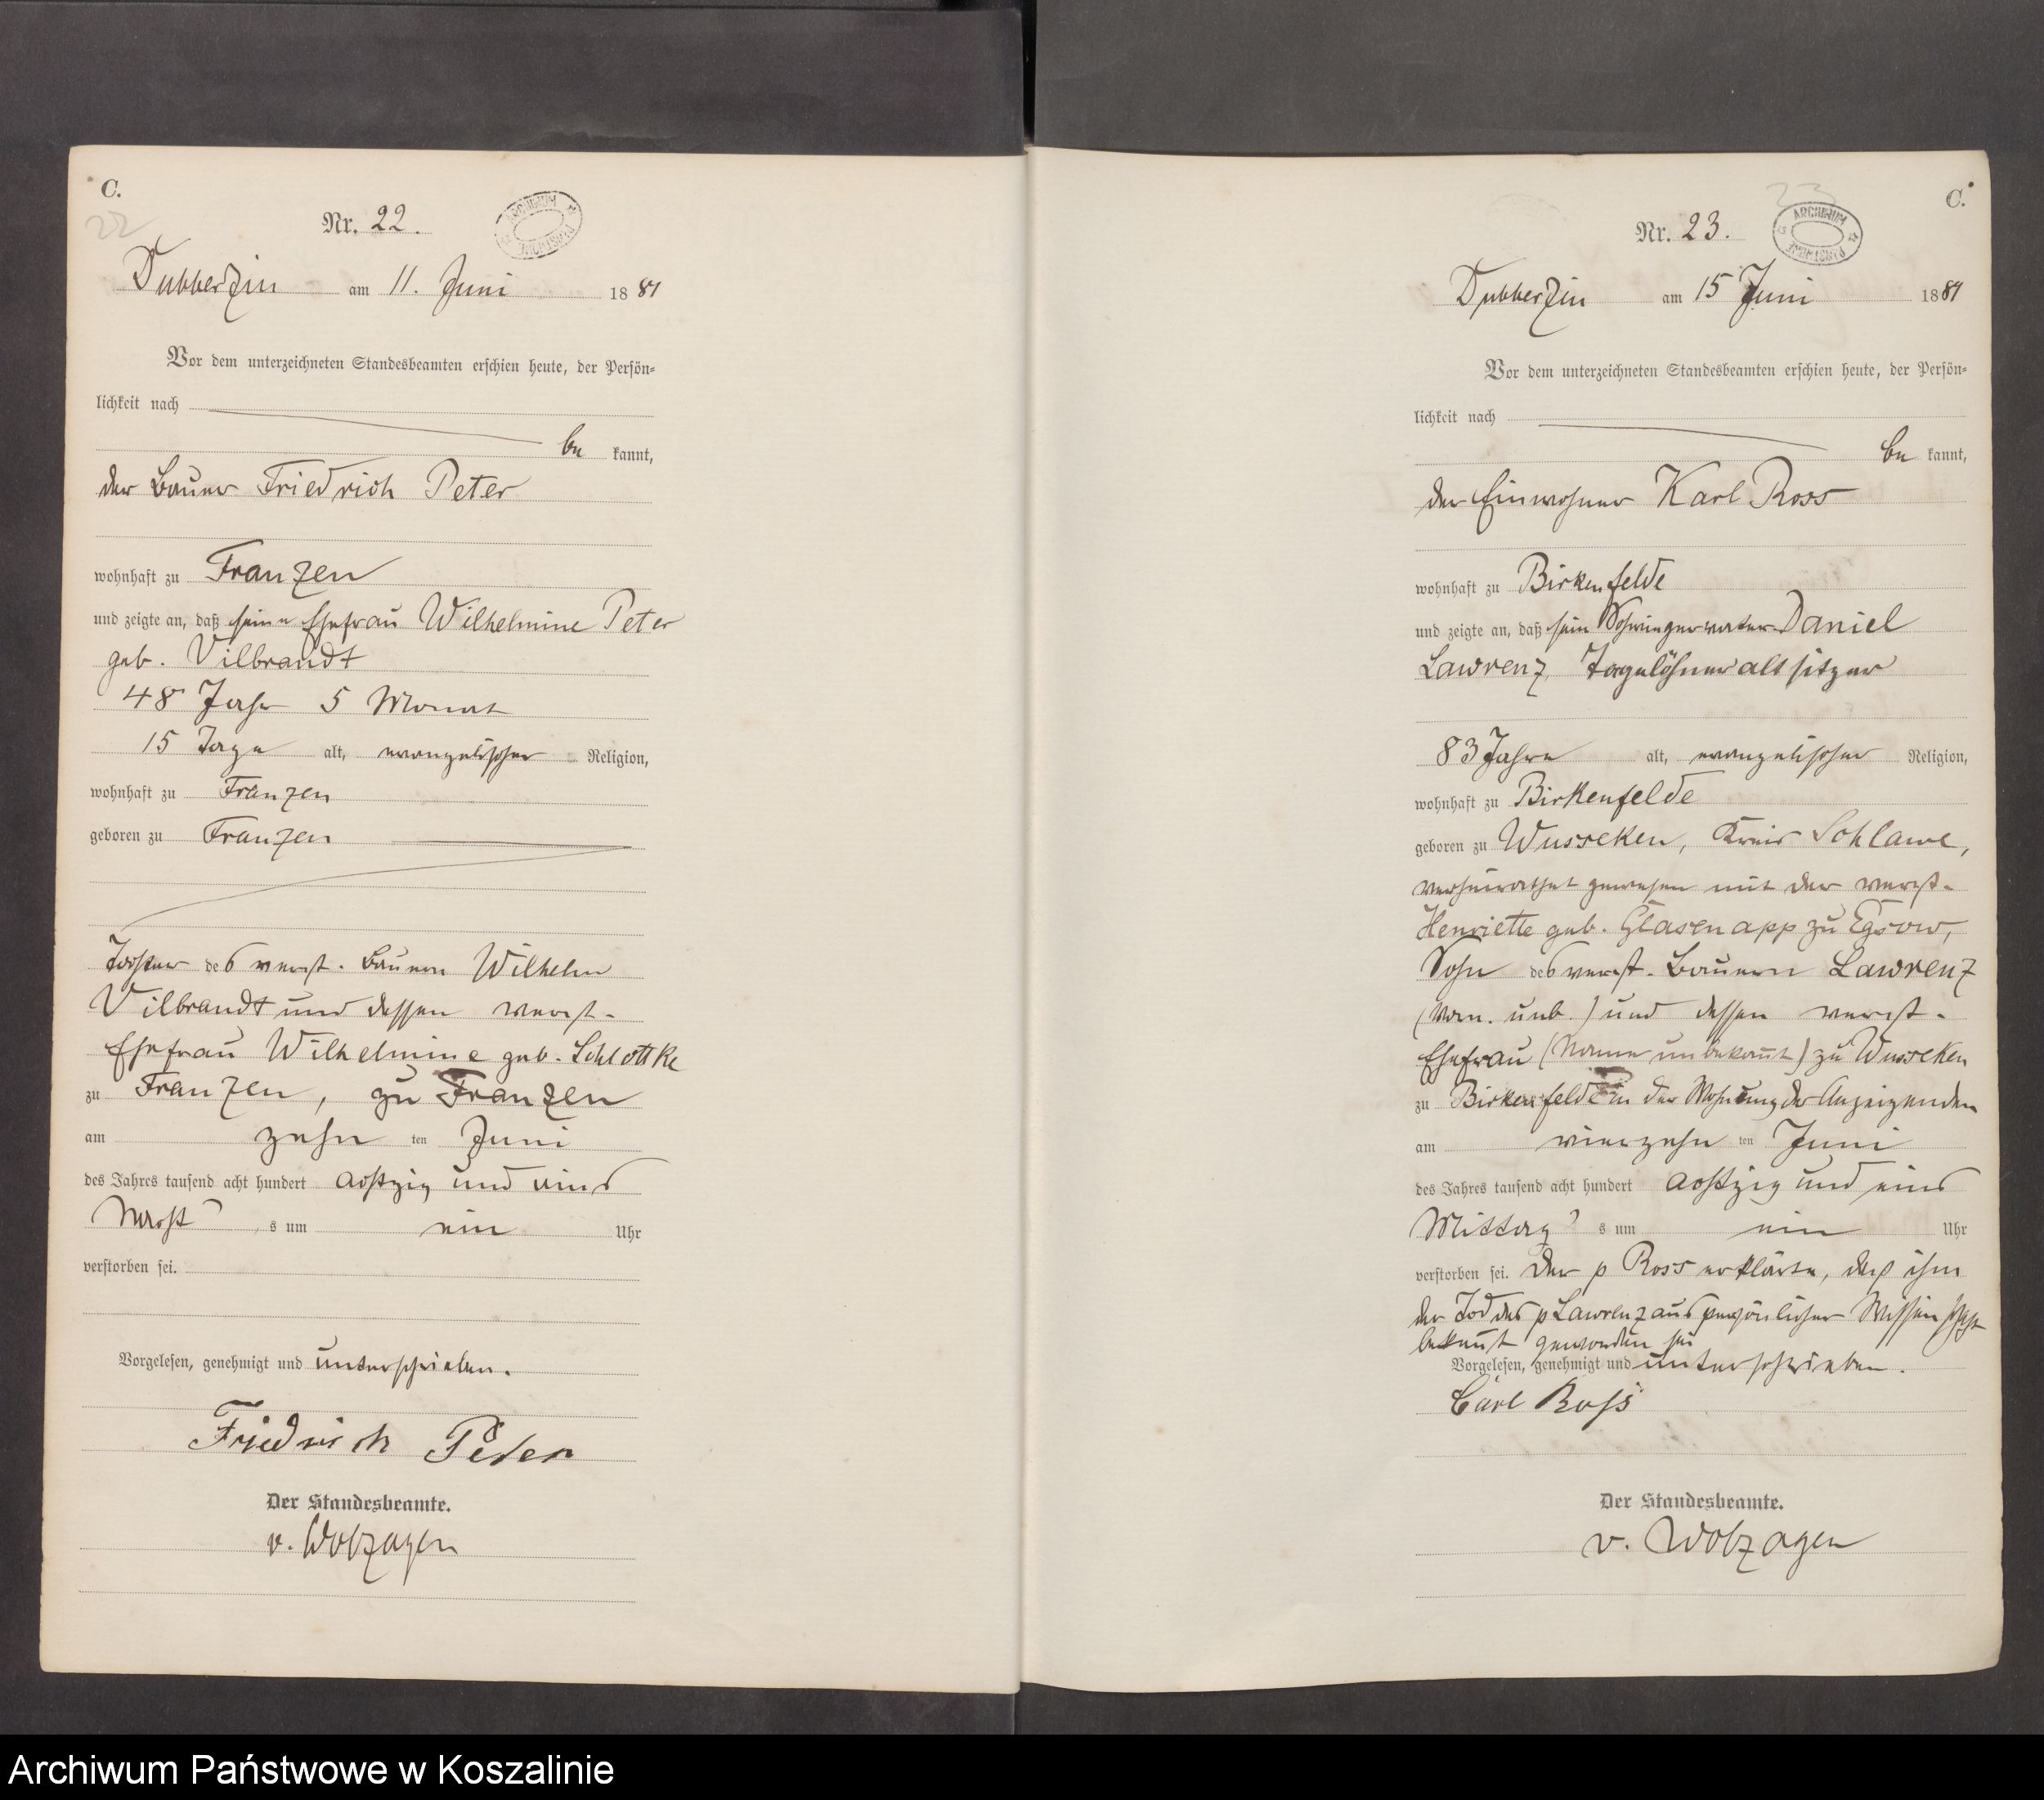 C.
22
Nr. 22.
ARCHIWUM PAŃSTWOWE
Dubberzin am 11. Juni 1881
Vor dem unterzeichneten Standesbeamten erschien heute, der Persön-
lichkeit nach
be kannt,
der Bauer Friedrich Peter
wohnhaft zu Franzen
und zeigte an, daß seine Ehefrau Wilhelmine Peter
geb. Vilbrandt
48 Jahr 5 Monat
15 Tage alt, evangelischer Religion,
wohnhaft zu Franzen
geboren zu Franzen
Tochter des verst. Bauern Wilhelm
Vilbrandt und dessen verst.
Ehefrau Wilhelmine geb. Schlottke
zu Franzen, zu Franzen
am zehn ten Juni
des Jahres tausend acht hundert achtzig und eins
Nacht s um ein Uhr
verstorben sei.
Vorgelesen, genehmigt und unterschrieben.
Friedrich Peter
Der Standesbeamte.
v. Wolzogen
C.
23
Nr. 23.
ARCHIWUM PAŃSTWOWE
Dubberzin am 15 Juni 1881
Vor dem unterzeichneten Standesbeamten erschien heute, der Persön-
lichkeit nach
be kannt,
der Einwohner Karl Ross
wohnhaft zu Birkenfelde
und zeigte an, daß sein Schwiegervater Daniel
Lawrenz, Tagelöhneraltsitzer
83 Jahre alt, evangelischer Religion,
wohnhaft zu Birkenfelde
geboren zu Wusseken, Kreis Schlawe,
verheirathet gewesen mit der verst.
Henriette geb. Glasenapp zu Egsow,
Sohn des verst. Bauern Lawrenz
(Vorn. unb.) und dessen verst.
Ehefrau (Name unbekannt) zu Wusseken
zu Birkenfelde in der Wohnung des Anzeigenden
am vierzehn ten Juni
des Jahres tausend acht hundert achtzig und eins
Mittag s um ein Uhr
verstorben sei. Der p Ross erklärte, daß ihm
der Tod des p Lawrenz aus persönlicher Wissenschaft
bekannt geworden sei
Vorgelesen, genehmigt und unterschrieben.
Carl Roß
Der Standesbeamte.
v. Wolzogen
Archiwum Państwowe w Koszalinie